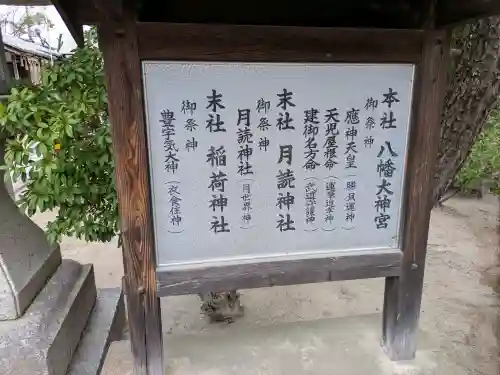 本社 八幡大神宮
御祭神
應神天皇(勝負運神)
天児屋根命(運撃追幸神)
建御名方命(武道家護神)
末社 月読神社
御祭神
月読神社(月世界神)
末社 稲荷神社
御祭神
豊宇気大神(衣食住神)